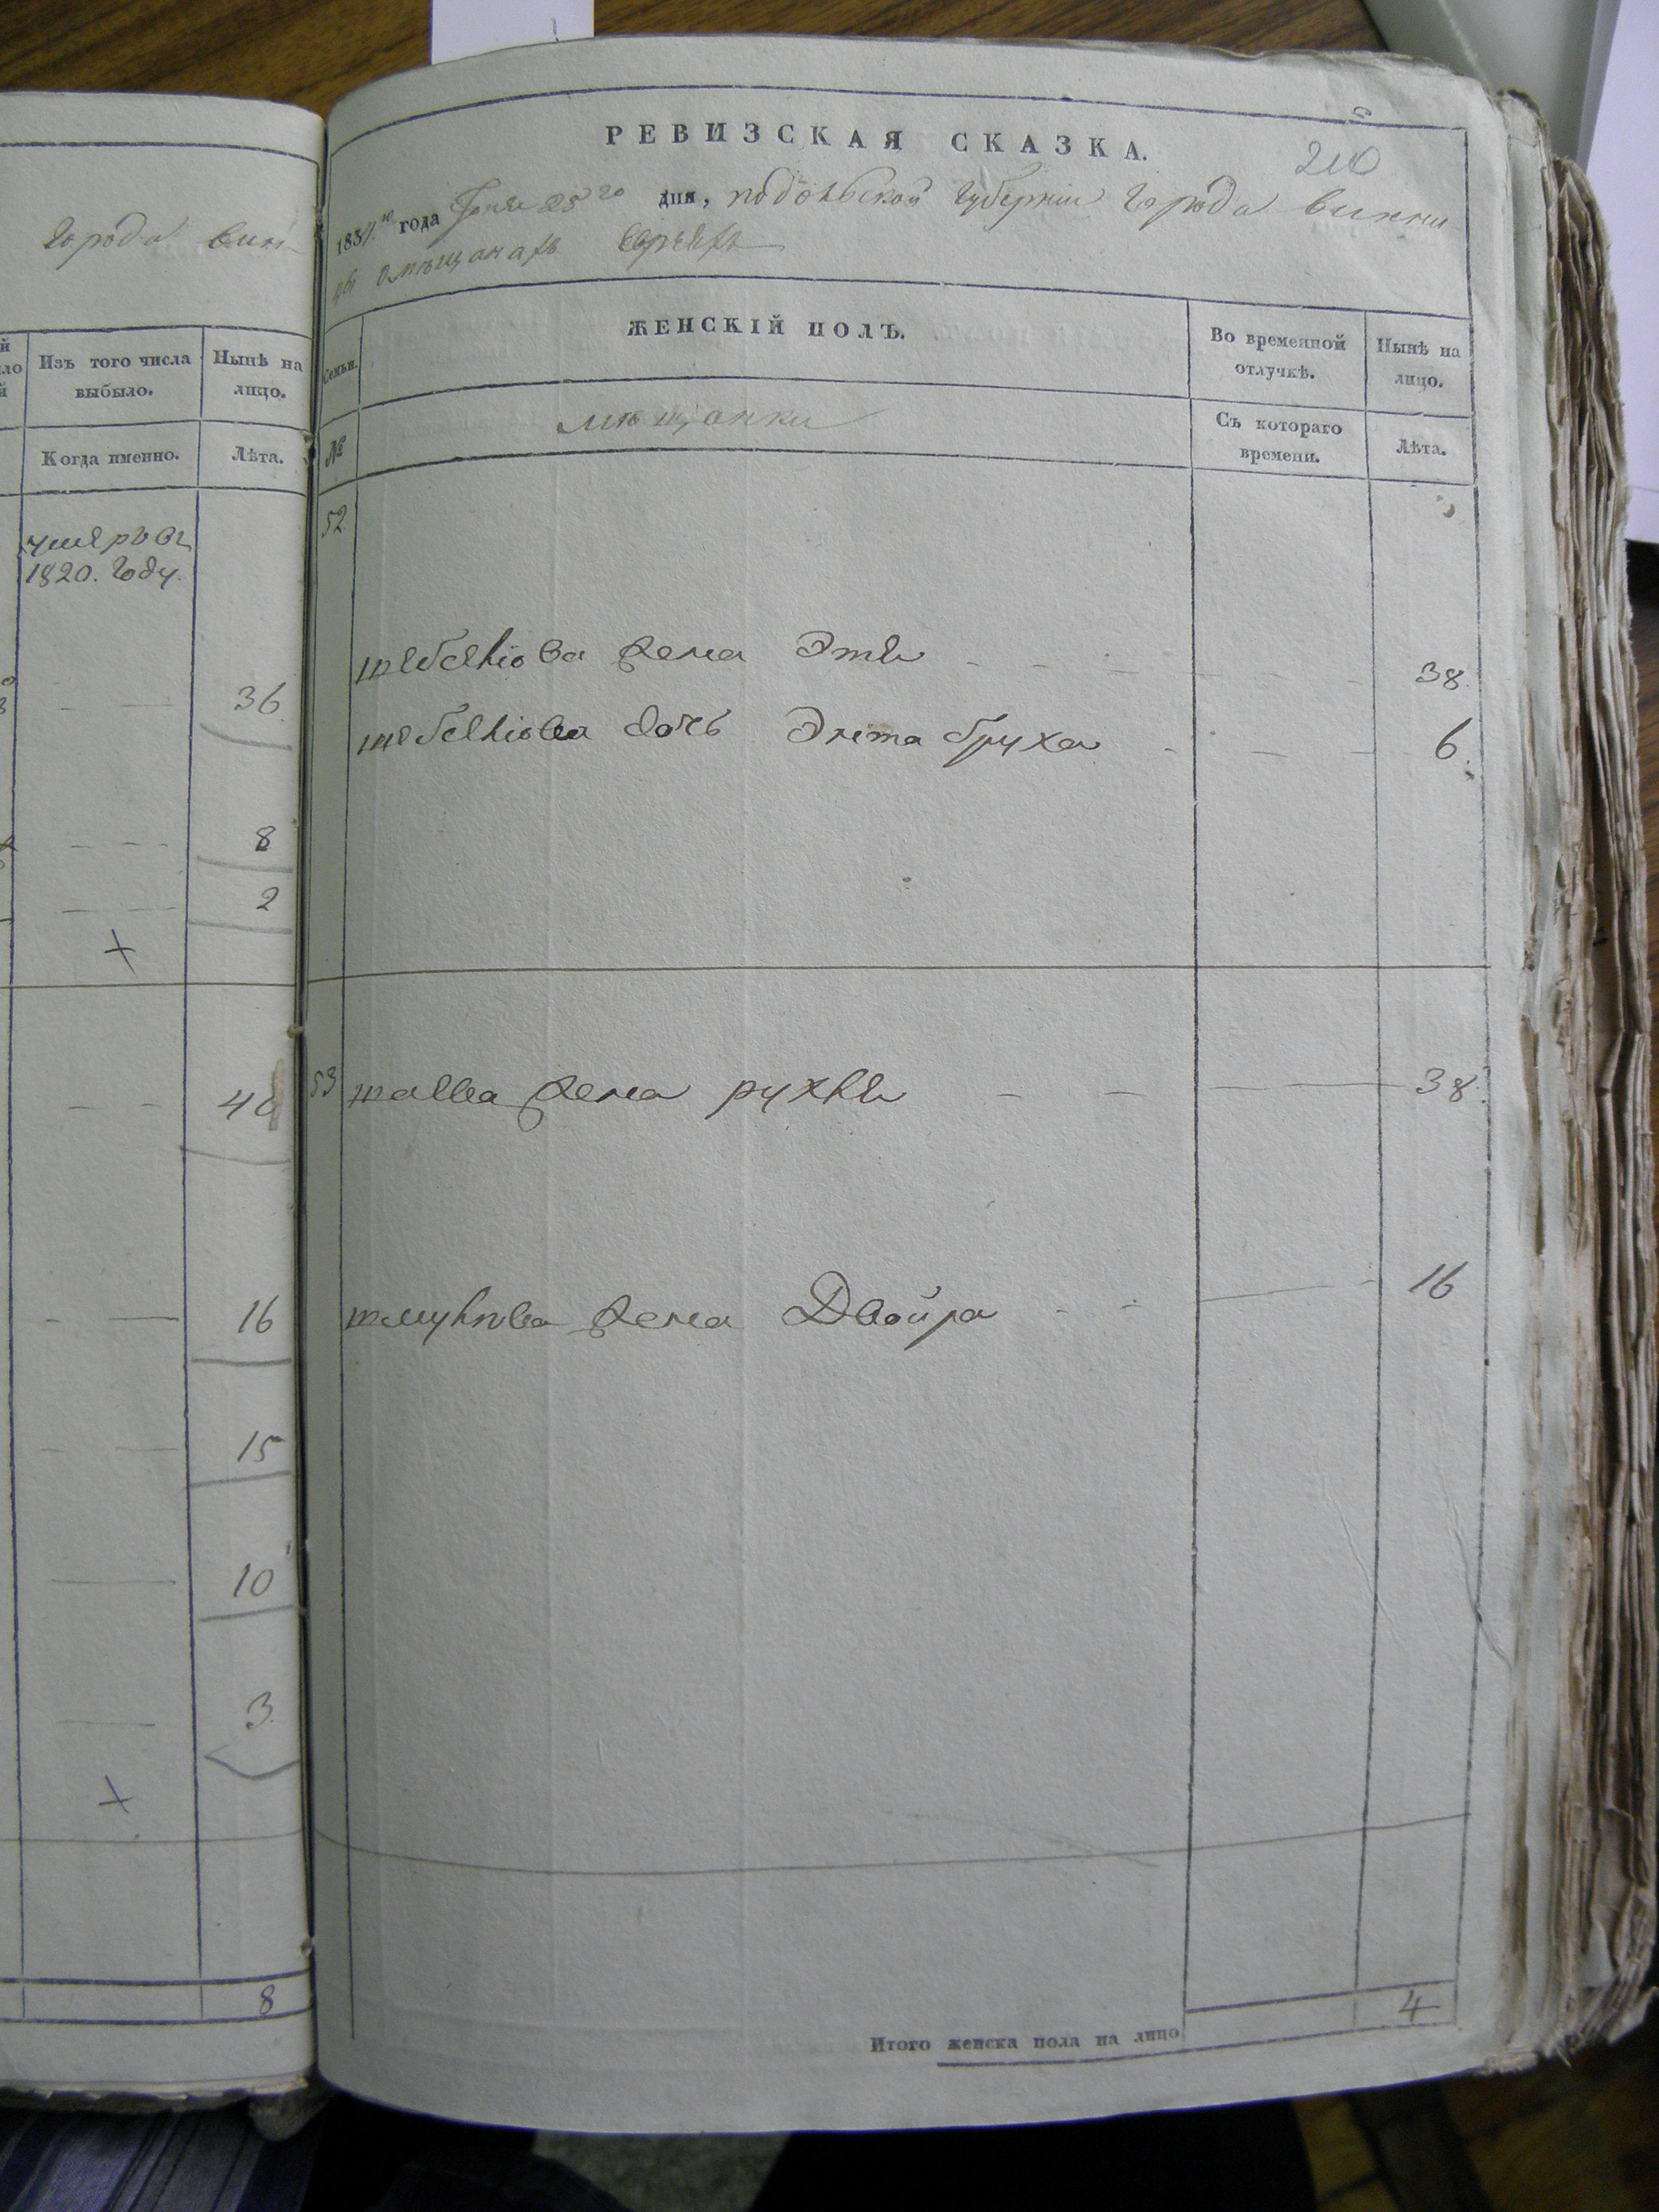 города вин
Изъ того числа выбыло.
Нынѣ на лицо.
Когда именно.
Лѣта.
умеръ въ
1820. году.
36
8
2
+
40
16
15
10
3
+
8
РЕВИЗСКАЯ СКАЗКА.
210
1834го года дня, подольской губерніи города винни
цы омѣщанахъ евреяхъ
Семьи.
ЖЕНСКІЙ ПОЛЪ.
Во временной отлучкѣ.
Нынѣ на лицо.
№
мѣщанки
Съ котораго времени.
Лѣта.
52
жена Эти 38.
дочь Энта бруха 6.
53 жена рухля 38.
шмулева жена Двойра 16
4
Итого женска пола на лицо